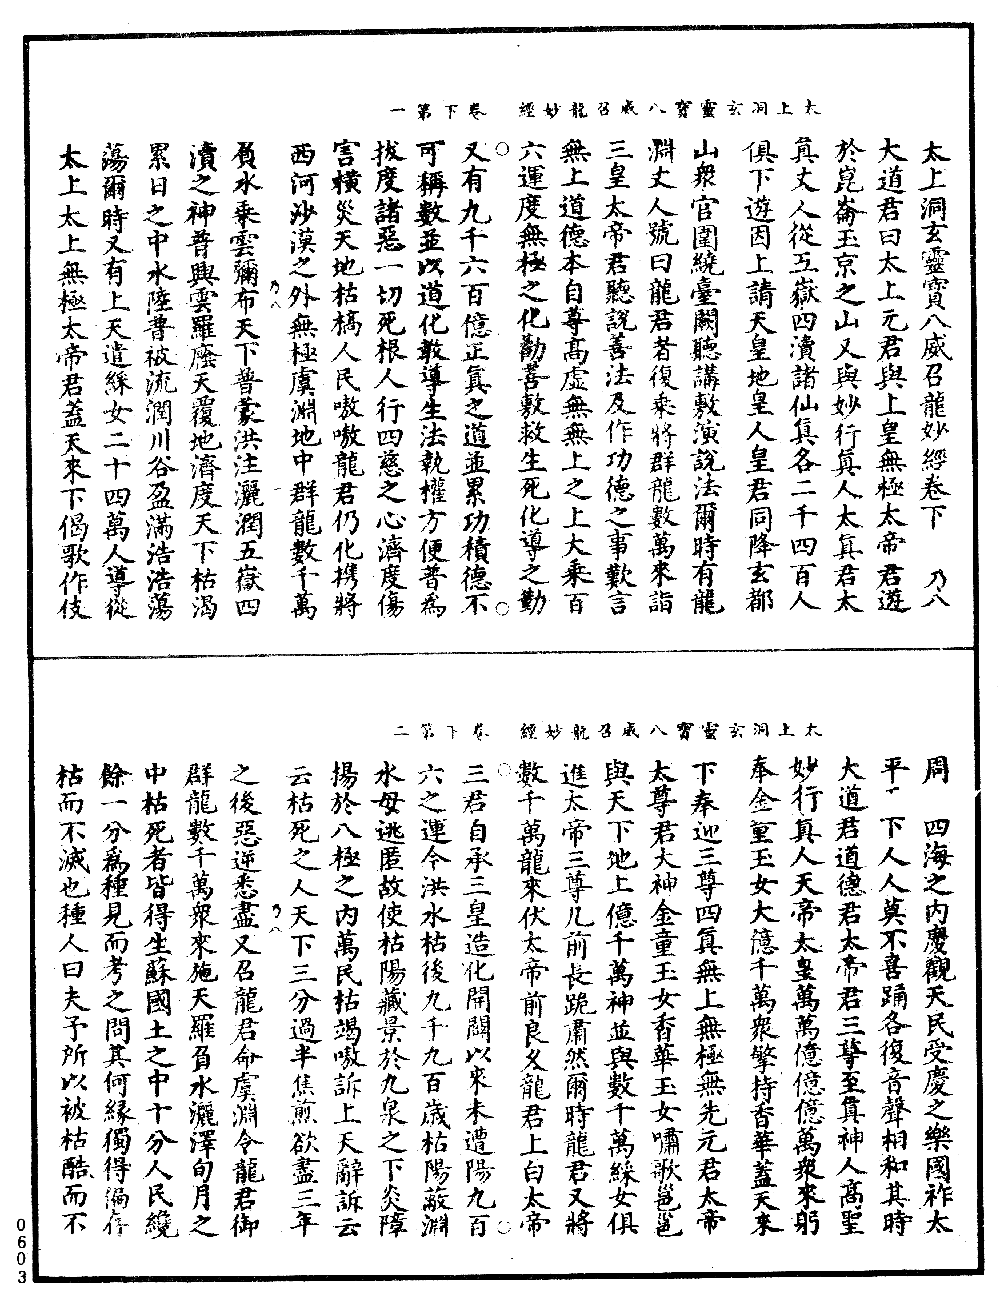 太上洞玄靈寶八威召龍妙經 卷下第一
太上洞玄靈寶八威召龍妙經卷下 乃八
大道君曰太上元君與上皇無極太帝君遊
於崑崙玉京之山又與妙行真人太真君太
真丈人從五嶽四瀆諸仙真各二千四百人
俱下遊因上請天皇地皇人皇君同降玄都
山衆官圍繞臺闕聽講敷演說法爾時有龍
淵丈人號曰龍君者復乘將群龍數萬來詣
三皇太帝君聽說善法及作功德之事歎言
無上道德本自尊高虛無無上之上大乘百
六運度無極之化勸善敷救生死化導之勤
又有九千六百億正真之道並累功積德不
可稱數並以道化敢導生法執權方便普為
拔度諸惡一切死根人行四慈之心濟度傷
害橫災天地枯槁人民嗷嗷龍君仍化携將
西河沙漠之外無極虞淵地中群龍數千萬
乃八
負水乘雲彌布天下普蒙洪注灑潤五嶽四
瀆之神普興雲羅塵天覆地濟度天下枯渴
累日之中水陸普被流潤川谷盈滿浩浩蕩
蕩爾時又有上天遣綵女二十四萬人導從
太上太上無極太帝君蓋天來下偈歌作伎
太上洞玄靈寶八威召龍妙經 卷下第二
周 四海之內慶觀天民受慶之樂國祚太
平 下人人莫不喜踊各復音聲相和其時
大道君道德君太帝君三尊至真神人高聖
妙行真人天帝太皇萬萬億億億萬衆來躬
奉金童玉女大億千萬衆擎持香華蓋天來
下奉迎三尊四真無上無極無先元君太帝
太尊君大神金童玉女香華玉女嘯歌邕邕
與天下地上億千萬神並與數千萬綵女俱
進太帝三尊几前長跪肅然爾時龍君又將
數千萬龍來伏太帝前良久龍君上白太帝
三君自承三皇造化開闢以來未遭陽九百
六之運今洪水枯後九千九百歲枯陽蔽淵
水母逃匿故使枯陽藏景於九泉之下炎障
揚於八極之內萬民枯竭嗷訴上天辭訴云
云枯死之人天下三分過半焦煎欲盡三年
乃八
之後惡逆悉盡又召龍君命虞淵令龍君御
群龍數千萬衆來施天羅負水灑澤旬月之
中枯死者皆得生蘇國土之中十分人民纔
餘一分為種見而考之問其何緣獨得偏存
枯而不滅也種人曰夫予所以被枯酷而不
0603